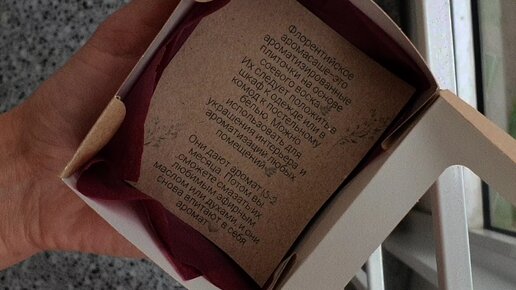 Флорентийское
аромасаше-это
ароматизированные
плиточки на основе
соевого воска
Их следует положить в
шкаф к одежде или в
комод к постельному
белью. Можно
использовать для
украшения интерьера и
ароматизации любых
помещений
Они дают аромат 1,5-3
месяца. Потом вы
сможете смазать их
любимым эфирным
маслом или духами, и они
снова впитают в себя
аромат